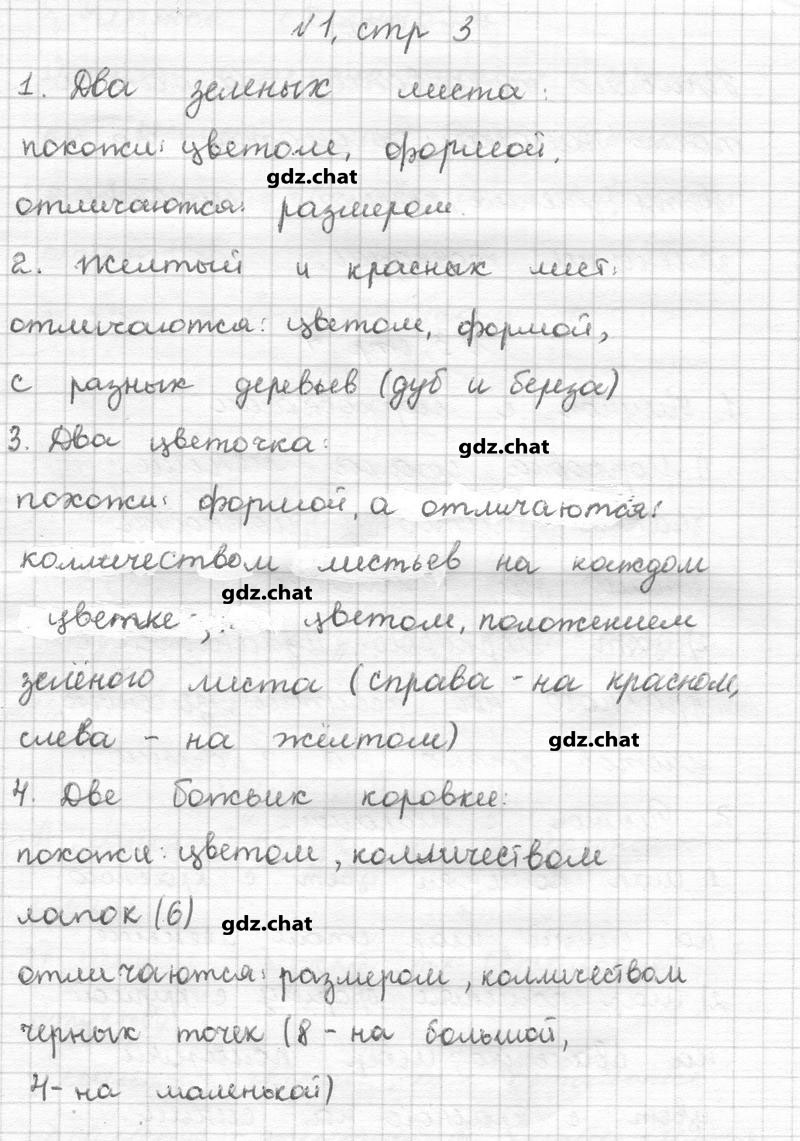 №1, стр 3
1. Два зеленых листа:
похожи: цветом, формой,
gdz.chat
отличаются: размером.
2. Желтый и красных лист:
отличаются: цветом, формой,
с разных деревьев (дуб и береза)
3. Два цветочка:
gdz.chat
похожи: формой, а отличаются:
колличеством листьев на каждом
gdz.chat
цветке, цветом, положением
зелёного листа (справа - на красном,
слева - на жёлтом)
gdz.chat
4. Две божьих коровки:
похожи: цветом, колличеством
лапок (6)
gdz.chat
отличаются: размером, колличеством
черных точек (8 - на большой,
4 - на маленькой)